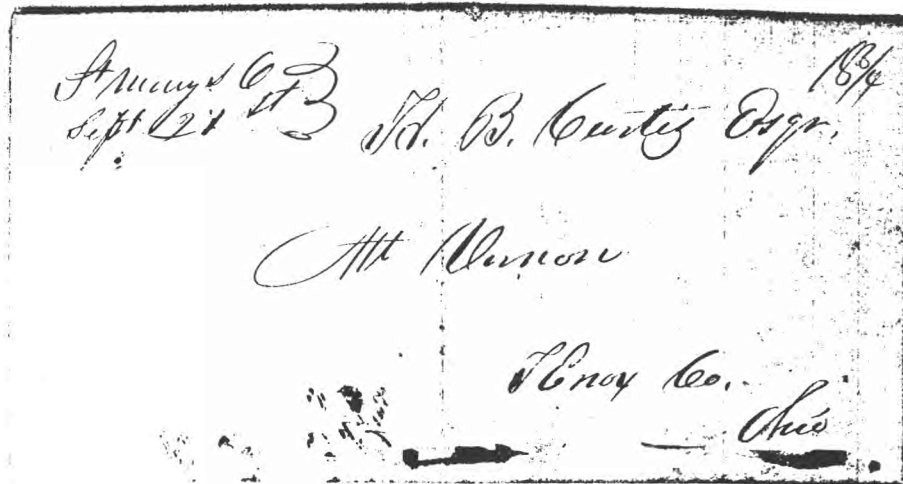 St Marys O
Sept 21st
18 3/4
H. B. Curtis Esqr.
Mt Vernon
Knox Co.
Ohio